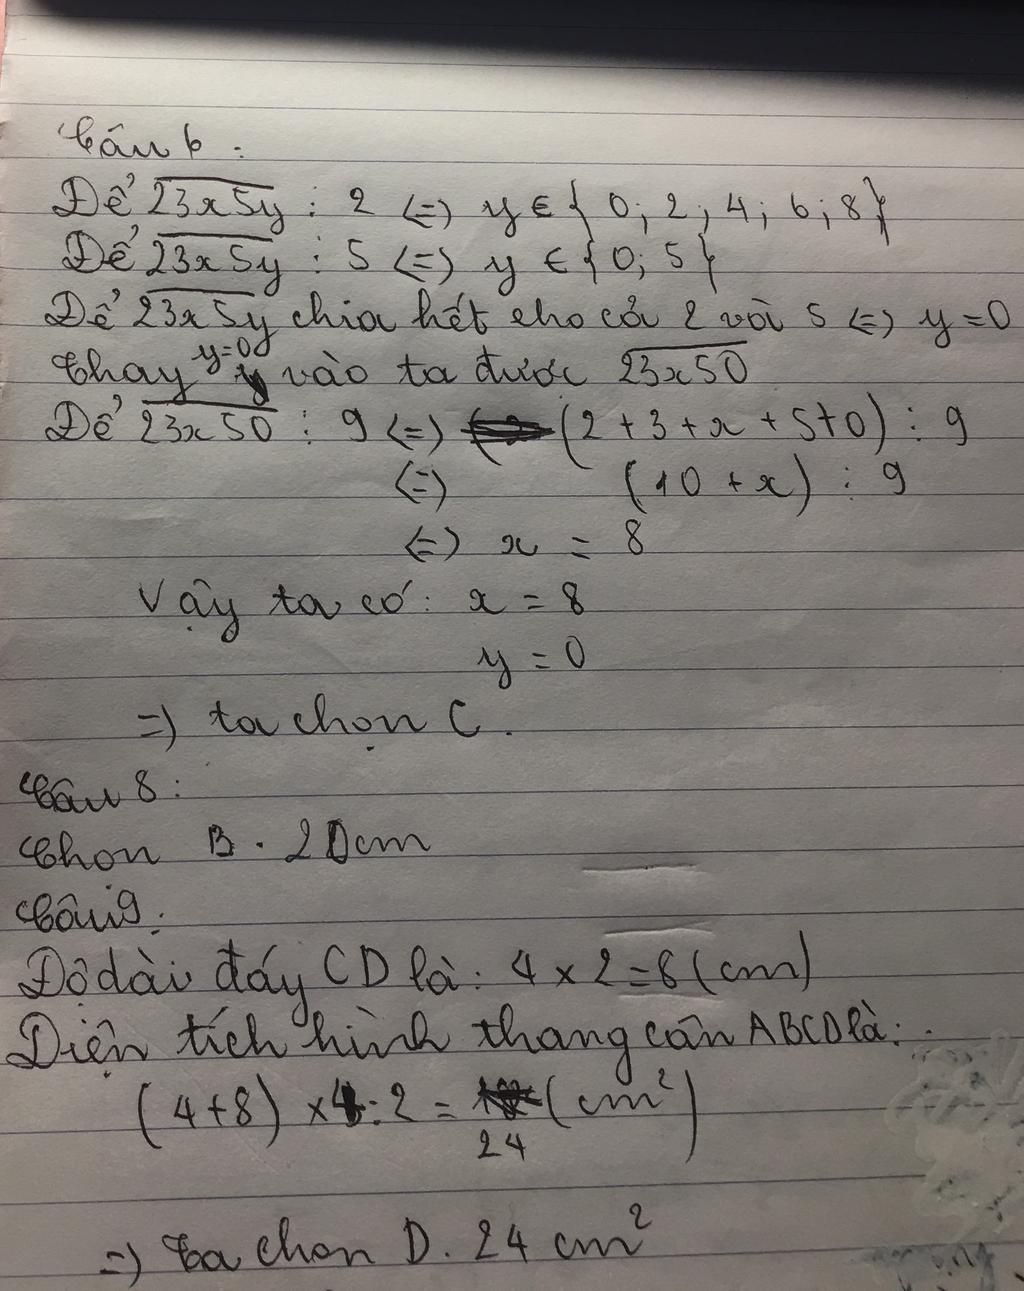 Câu 6:
Để 23x5y ⋮ 2 <=> y ∈ { 0; 2; 4; 6; 8}
Để 23x5y ⋮ 5 <=> y ∈ {0; 5}
Để 23x5y chia hết cho cả 2 và 5 <=> y = 0
Thay y=0 vào ta được 23x50
Để 23x50 ⋮ 9 <=> (2 + 3 + x + 5 + 0) ⋮ 9
<=> (10 + x) ⋮ 9
<=> x = 8
Vậy ta có: x = 8
y = 0
=> ta chọn C.
Câu 8:
Chọn B. 20cm
Câu 9:
Độ dài đáy CD là: 4 x 2 = 8 (cm)
Diện tích hình thang cân ABCD là:
(4+8) x 4 : 2 = 24 (cm²)
=> Ta chọn D. 24 cm²